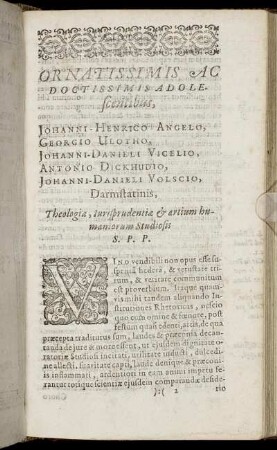 ORNATISSIMIS AC
DOCTISSIMIS ADOLE-
scentibus,
JOHANNI-HENRICO ANGELO,
GEORGIO ULOTHO,
JOHANNI-DANIELI VICELIO,
ANTONIO DICKHUDIO,
JOHANNI-DANIELI VOLSCIO,
Darmstatinis,
Theologiæ, jurisprudentiæ & artium hu-
maniorum Studiosis
S. P. P.
VINO vendibili non opus esse su-
spensâ hederâ, & vetustate tritum,
& veritate communitum
est proverbium. Itaque quam-
vis mihi tandem aliquando In-
stitutiones Rhetoricas, nescio
quo cum omine & fœnore, post
sessum quasi edenti, actis, de quâ
præcepta traduntur sum, laudes & præconia decan-
tanda de jure & more essent, ut ejusdem dignitate o-
ratoriæ Studiosi incitati, utilitate inducti, dulcedi-
ne allecti, raritate capti, laude denique & præconi-
is inflammati, ardentiori in eam animi impetu fe-
rantur totique scientiæ ejusdem comparandæ deside-
):( 2 rio